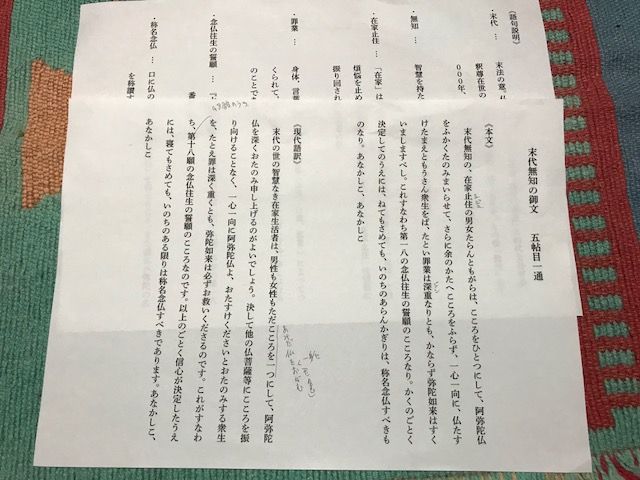 末代無知の御文　五帖目一通
《本文》
末代無知の、在家止住の男女たらんともがらは、こころをひとつにして、阿弥陀仏
をふかくたのみまいらせて、さらに余のかたへこころをふらず、一心一向に、仏たす
けたまえともうさん衆生をば、たとい罪業は深重なりとも、かならず弥陀如来はすく
いましますべし。これすなわち第一八の念仏往生の誓願のこころなり。かくのごとく
決定してのうえには、ねてもさめても、いのちのあらんかぎりは、称名念仏すべきも
のなり。あなかしこ、あなかしこ
《現代語訳》
末代の世の智慧なき在家生活者は、男性も女性もただこころを一つにして、阿弥陀
仏を深くおたのみ申し上げるのがよいでしょう。決して他の仏菩薩等にこころを振
り向けることなく、一心一向に阿弥陀仏よ、おたすけくださいとおたのみする衆生
を、たとえ罪は深く重くとも、弥陀如来は必ずお救いくださるのです。これがすなわ
ち、第十八願の念仏往生の誓願のこころなのです。以上のごとく信心が決定したうえ
には、寝てもさめても、いのちのある限りは称名念仏すべきであります。あなかしこ、
あなかしこ
《語句説明》
・末代 … 末法の意。
釈尊在世の
000年、
・無知 … 智慧を持た
・在家止住 … 「在家」は
煩悩を止め
振り回され
・罪業 … 身体、言葉
くられて、
のことで
・念仏往生の誓願 …
番
・称名念仏 … 口に仏の
を称讃す